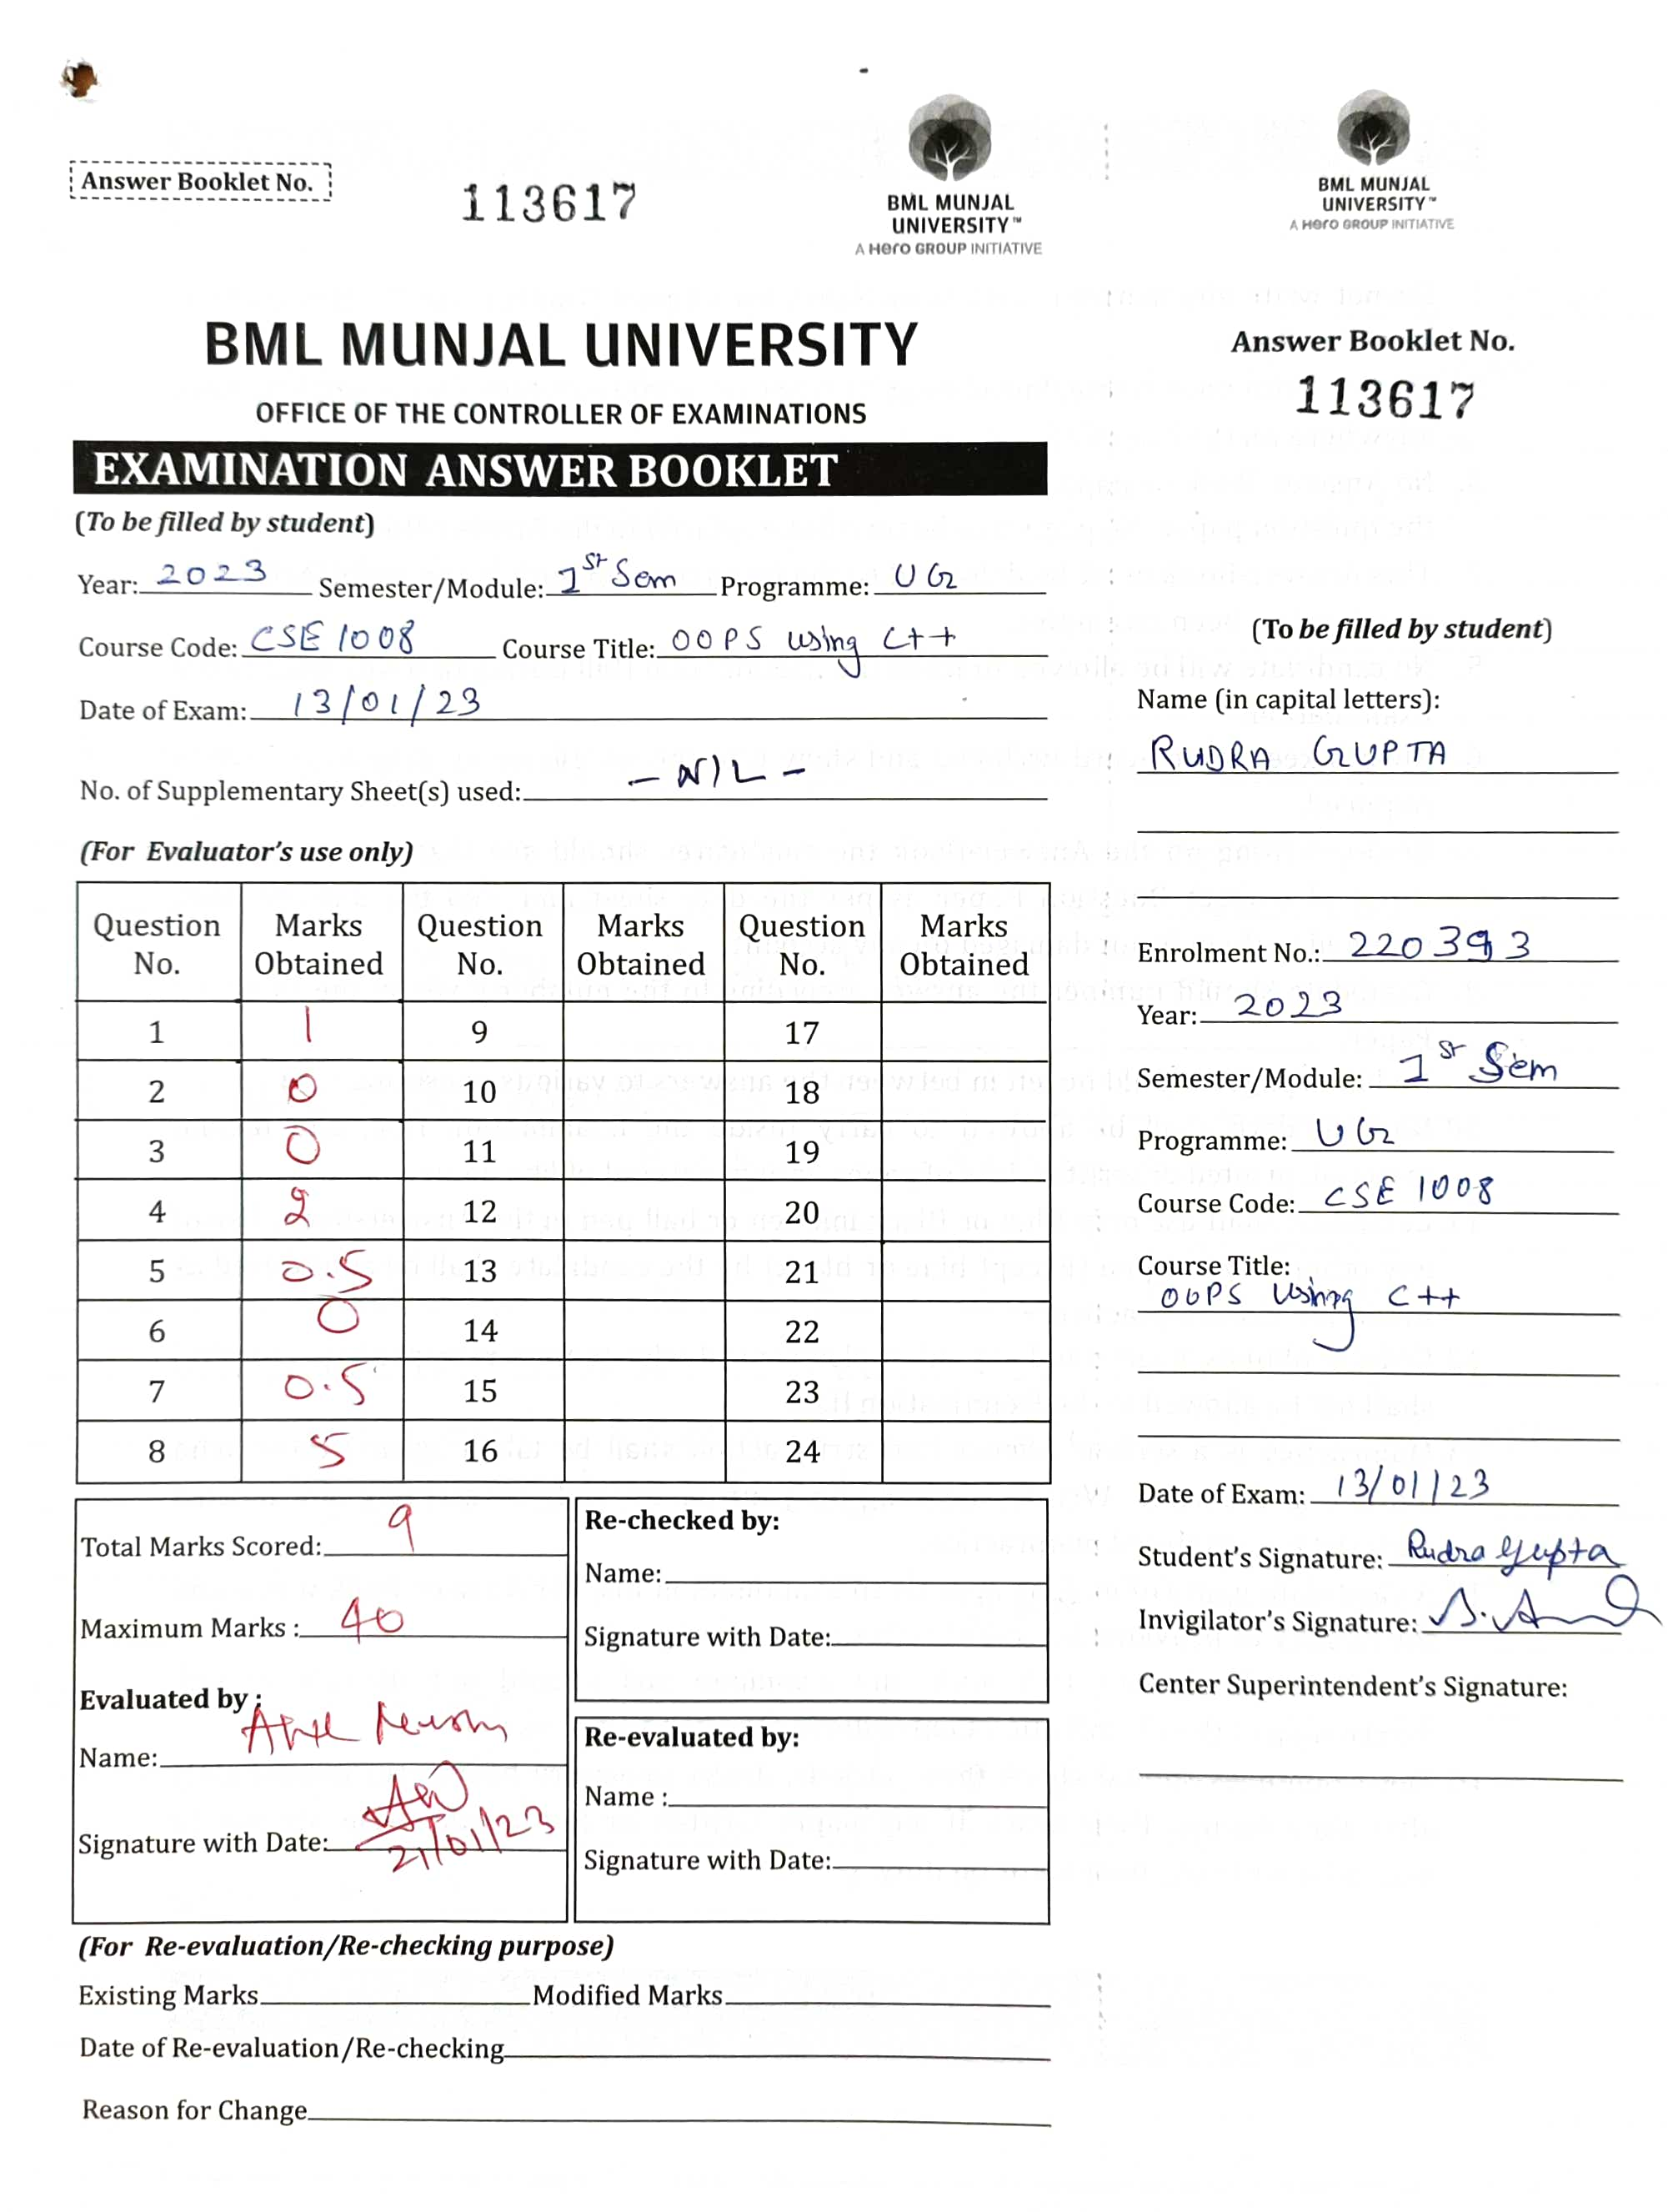 Answer Booklet No.
113617
BML MUNJAL
UNIVERSITY™
A Hero GROUP INITIATIVE
BML MUNJAL
UNIVERSITY™
A Hero GROUP INITIATIVE
BML MUNJAL UNIVERSITY
OFFICE OF THE CONTROLLER OF EXAMINATIONS
EXAMINATION ANSWER BOOKLET
(To be filled by student)
Year: 2023 Semester/Module: 1st Sem Programme: UG
Course Code: CSE 1008 Course Title: OOPS using C++
Date of Exam: 13/01/23
No. of Supplementary Sheet(s) used: - NIL -
(For Evaluator's use only)
Question No. Marks Obtained Question No. Marks Obtained Question No. Marks Obtained
1 1 9 17
2 0 10 18
3 0 11 19
4 2 12 20
5 0.5 13 21
6 0 14 22
7 0.5 15 23
8 5 16 24
Total Marks Scored: 9
Maximum Marks : 40
Evaluated by :
Name:
Signature with Date: 21/01/23
Re-checked by:
Name:
Signature with Date:
Re-evaluated by:
Name :
Signature with Date:
(For Re-evaluation/Re-checking purpose)
Existing Marks Modified Marks
Date of Re-evaluation/Re-checking
Reason for Change
Answer Booklet No.
113617
(To be filled by student)
Name (in capital letters):
RUDRA GUPTA
Enrolment No.: 220393
Year: 2023
Semester/Module: 1st Sem
Programme: UG
Course Code: CSE 1008
Course Title:
OOPS using C++
Date of Exam: 13/01/23
Student's Signature: Rudra Gupta
Invigilator's Signature:
Center Superintendent's Signature: